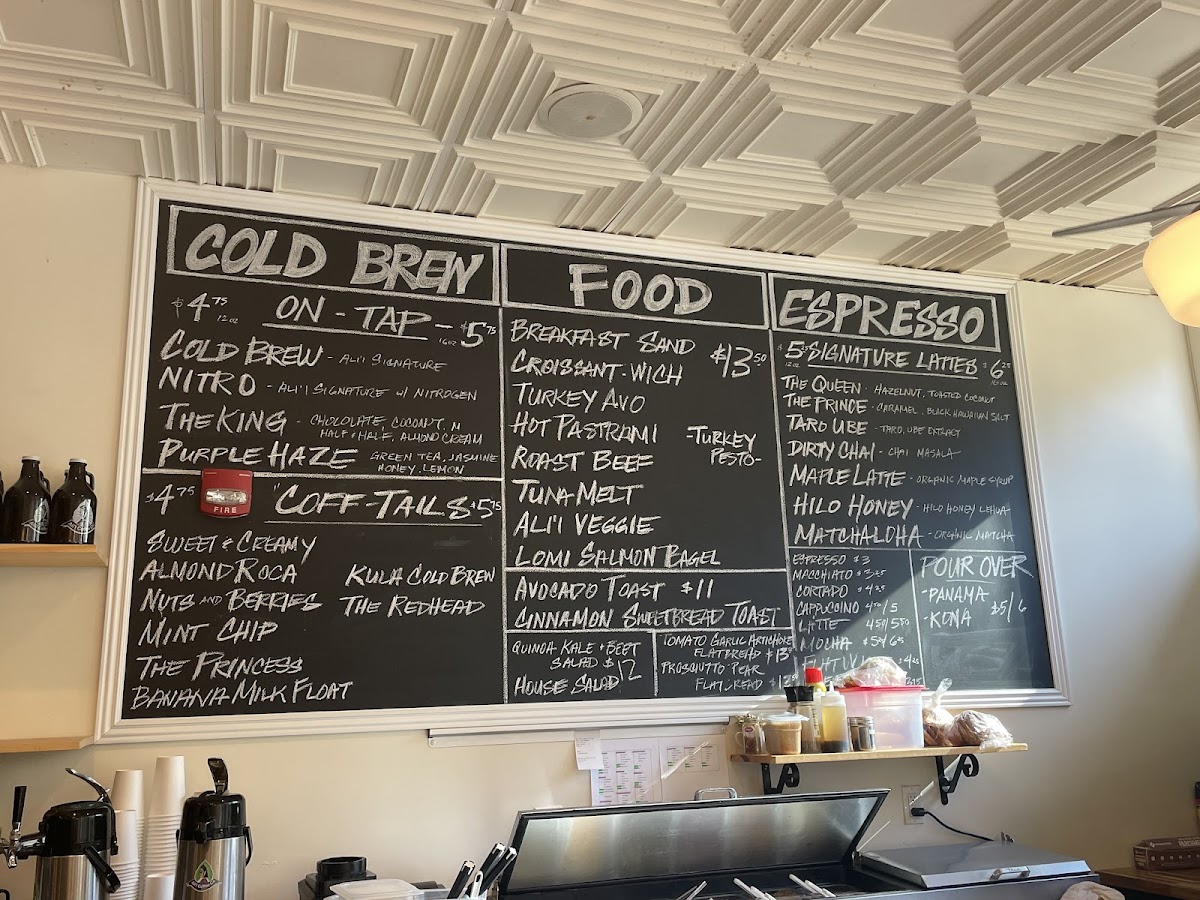 COLD BREW
$4.75 12oz ON-TAP- 16oz $5.75
COLD BREW - ALI'I SIGNATURE
NITRO - ALI'I SIGNATURE W/ NITROGEN
THE KING - CHOCOLATE, COCONUT, M
HALF & HALF, ALMOND CREAM
PURPLE HAZE GREEN TEA, JASMINE
HONEY, LEMON
$4.75 "COFF-TAILS $5.75
FIRE
SWEET & CREAMY
ALMOND ROCA
NUTS AND BERRIES
MINT CHIP
THE PRINCESS
BANANA MILK FLOAT
KULA COLD BREW
THE REDHEAD
FOOD
BREAKFAST SAND
CROISSANT-WICH
$13.50
TURKEY AVO
HOT PASTRAMI
ROAST BEEF
-TURKEY
PESTO-
TUNA MELT
ALI'I VEGGIE
LOMI SALMON BAGEL
AVOCADO TOAST $11
CINNAMON SWEETBREAD TOAST
QUINOA KALE & BEET
SALAD $12
HOUSE SALAD
TOMATO GARLIC ARTICHOKE
FLATBREAD $13
PROSCIUTTO PEAR
ESPRESSO
$5.25 12oz SIGNATURE LATTES $6.25 16oz
THE QUEEN - HAZELNUT, TOASTED COCONUT
THE PRINCE - CARAMEL, BLACK HAWAIIAN SALT
TARO UBE - TARO, UBE EXTRACT
DIRTY CHAI - CHAI MASALA
MAPLE LATTE - ORGANIC MAPLE SYRUP
HILO HONEY - HILO HONEY LEHUA
MATCHALOHA - ORGANIC MATCHA
ESPRESSO $3
MACCHIATO
CORTADO
CAPPUCCINO
LATTE
MOCHA
POUR OVER
-PANAMA
-KONA
$5/6